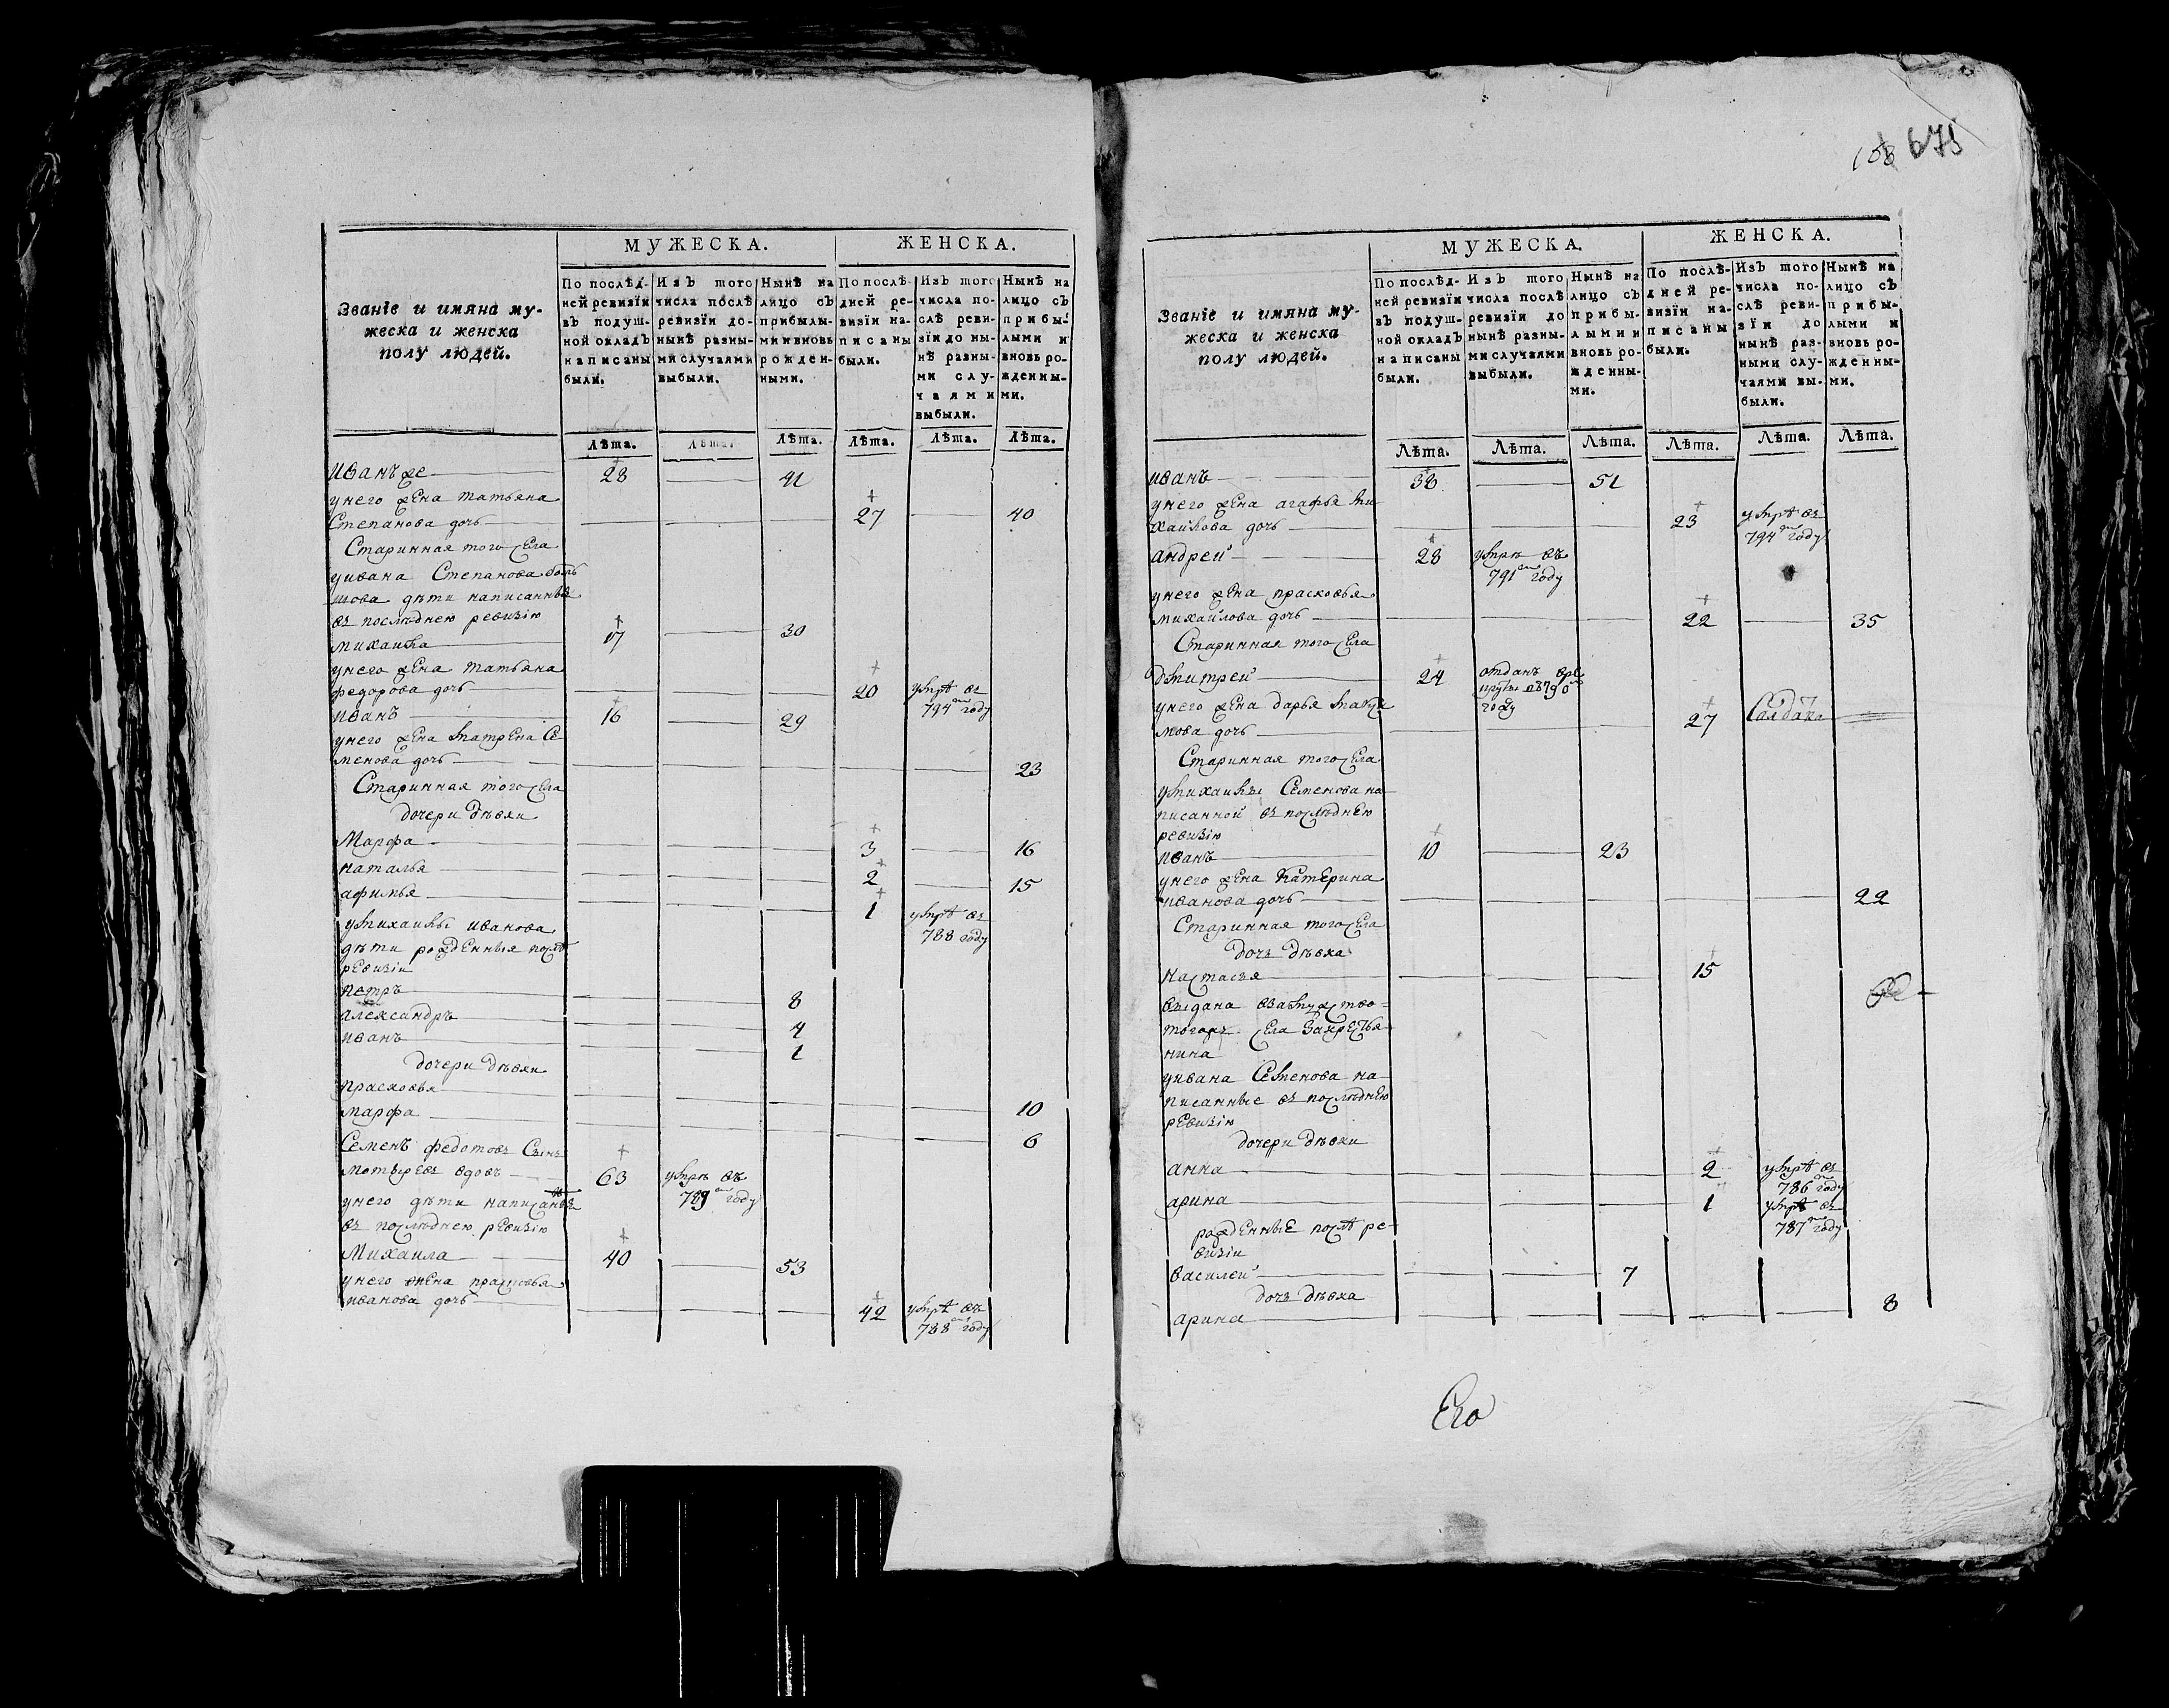 МУЖЕСКА. ЖЕНСКА.
Званїе и имяна му-
жеска и женска
полу людей.
По послѣд-
ней ревизїи
въ подуш-
ной окладъ
написаны
были.
Изъ того
числа послѣ
ревизїи до-
нынѣ разны-
ми случаями
выбыли.
Нынѣ на
лицо съ
прибылы-
ми и вновь
рожден-
ными.
По послѣ-
дней ре-
визїи на-
писаны
были.
Изъ того
числа по-
слѣ реви-
зїи до ны-
нѣ разны-
ми слу-
чаями
выбыли.
Нынѣ на
лицо съ
прибы-
лыми и
вновь ро-
жденны-
ми.
Лѣта. Лѣта. Лѣта. Лѣта. Лѣта. Лѣта.
Иванъ же 28 41
унего жена татьяна
Степанова дочь 27 40
Старинная того села
уивана Степанова боль
шова дѣти написанныя
въ послѣднею ревизїю
михаила 17 30
унего жена татьяна
федорова дочь 20 умрѣ въ
794 году
иванъ 16 29
унего жена матрена Се
менова дочь 23
Старинная того села
дочери дѣвки
Марфа 3 16
наталья 2 15
афимья 1 умрѣ въ
788 году
умихаилы иванова
дѣти рожденныя послѣ
ревизїи
петръ 8
александръ 4
иванъ 1
дочери дѣвки
прасковья 10
марфа 6
Семенъ федотовъ Сынъ
вдовъ 63 умрѣ въ
789 году
унего дѣти написаныя
въ послѣднею ревизїю
Михаила 40 53
унего жена прасковья
иванова дочь 42 умрѣ въ
788 году
675
МУЖЕСКА. ЖЕНСКА.
Званїе и имяна му-
жеска и женска
полу людей.
По послѣд-
ней ревизїи
въ подуш-
ной окладъ
написаны
были.
Изъ того
числа послѣ
ревизїи до
нынѣ разны-
ми случаями
выбыли.
Нынѣ на
лицо съ
прибы-
лыми и
вновь ро-
жденны-
ми.
По послѣ-
дней ре-
визїи на-
писаны
были.
Изъ того
числа по-
слѣ реви-
зїи до
нынѣ раз-
ными слу-
чаями вы-
были.
Нынѣ на
лицо съ
прибы-
лыми и
вновь ро-
жденны-
ми.
Лѣта. Лѣта. Лѣта. Лѣта. Лѣта. Лѣта.
иванъ 38 51
унего жена агафья ми
хаилова дочь 23 умрѣ въ
794 году
андрей 28 умрѣ въ
791 году
унего жена прасковья
михайлова дочь 22 35
Старинная того села
дмитрей 24 отданъ вре
круты в790
году
унего жена дарья макси
мова дочь 27
Старинная того села
умихаилы Семенова на
писанной въ послѣднею
ревизїю
иванъ 10 23
унего жена катерина
иванова дочь 22
Старинная того села
дочь дѣвка
настасья 15
выдана взамужство
тогожъ села закрестья
нина
уивана Семенова на
писанные въ послѣднею
ревизїю
дочери дѣвки
анна 2 умрѣ въ
786 году
арина 1 умрѣ въ
787 году
рожденные послѣ ре
визїи
василей 7
дочь дѣвка
арина 8
Его